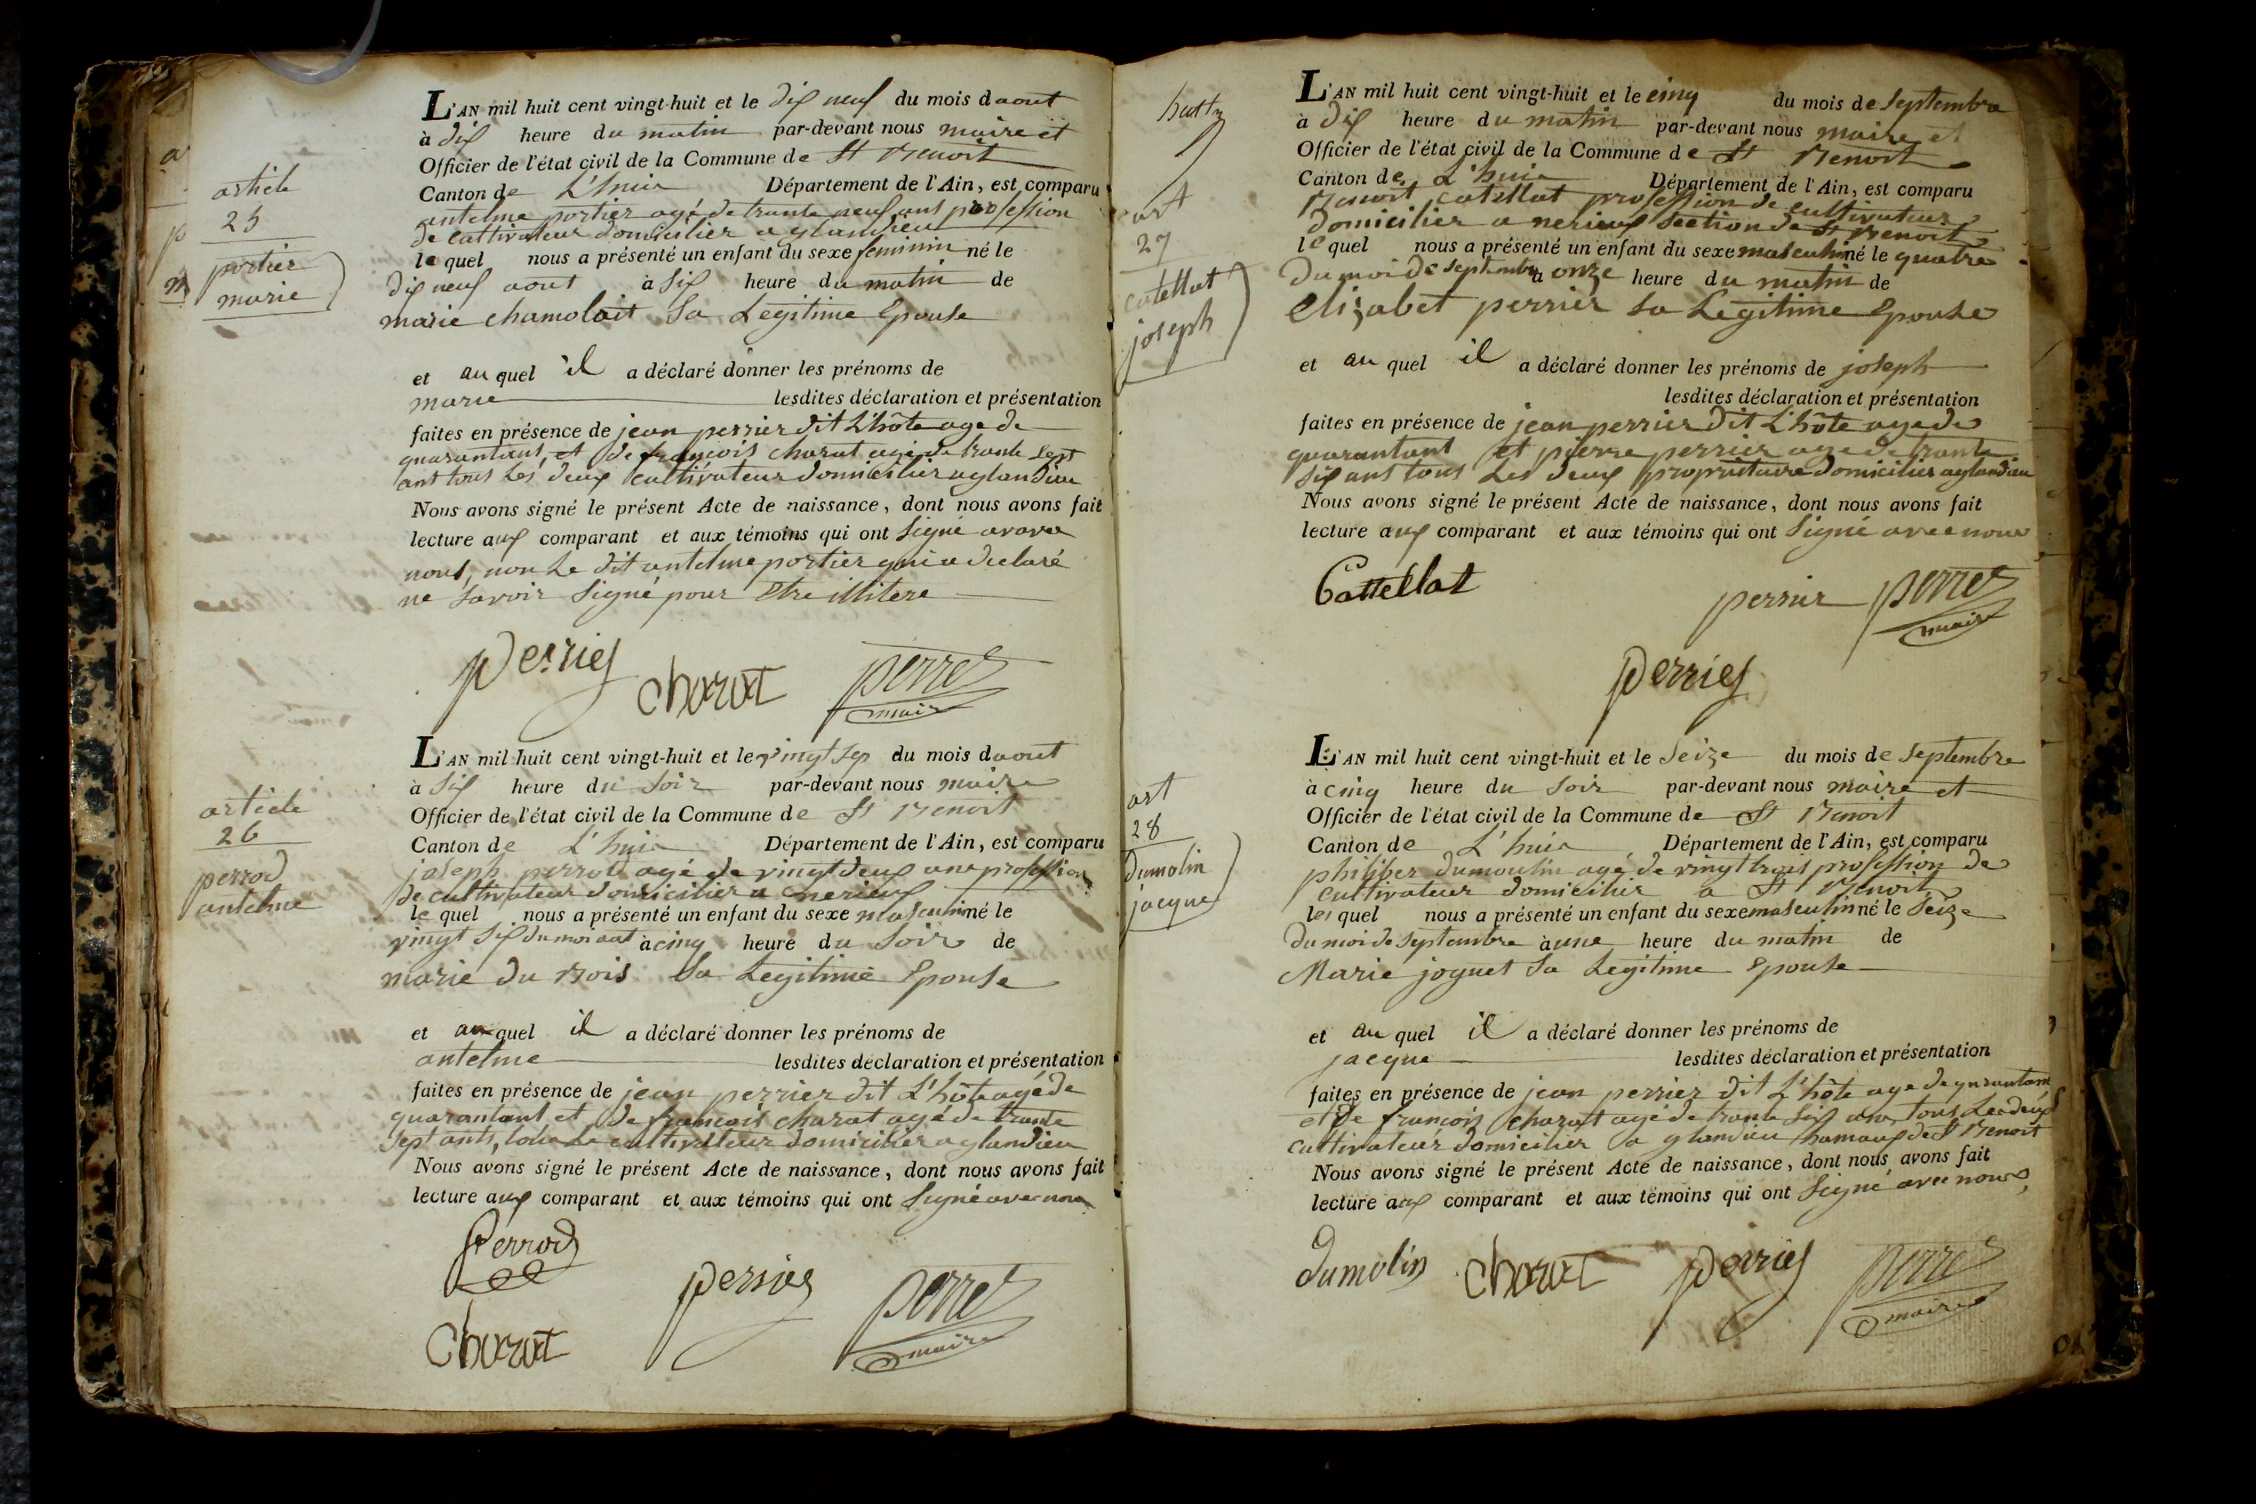 article
25
portier
marie
L'AN mil huit cent vingt-huit et le dix neuf du mois daout
à dix heure du matin par-devant nous maire et
Officier de l'état civil de la Commune de St Benoit
Canton de L'huis Département de l'Ain, est comparu
antelme portier agé de trante neuf ans profession
de cultivateur domicilier a glandieu
le quel nous a présenté un enfant du sexe feminin né le
dix neuf aout à six heure du matin de
marie chamolait sa Legitime Epouse
et au quel il a déclaré donner les prénoms de
marie lesdites déclaration et présentation
faites en présence de jean perrier dit L'hôte age de
quarantans et de francois charat agé de trante sept
ant tous Les deux cultivateur domicilier a glandieu
Nous avons signé le présent Acte de naissance, dont nous avons fait
lecture aux comparant et aux témoins qui ont signé avave
nous, non Le dit antelme portier qui a declaré
ne savoir signé pour Etre illitere
perrier
charat
perret
maire
article
26
perrod
antelme
L'AN mil huit cent vingt-huit et le vingt sep du mois daout
à six heure du soir par-devant nous maire
Officier de l'état civil de la Commune de St Benoit
Canton de L'huis Département de l'Ain, est comparu
joseph perrod agé de vingt deux ans profession
de cultivateur domicilier a nerieux
le quel nous a présenté un enfant du sexe masculin né le
vingt six du moi aut à cinq heure du soir de
marie du Bois sa Legitime Epouse
et au quel il a déclaré donner les prénoms de
antelme lesdites déclaration et présentation
faites en présence de jean perrier dit L'hôte agé de
quarantant et de francois charat agé de trante
sept ants, cultivateur domicilier a glandieu
Nous avons signé le présent Acte de naissance, dont nous avons fait
lecture aux comparant et aux témoins qui ont signé avec nous
Perrod
perrier
perret
maire
charat
art
27
catellat
joseph
L'AN mil huit cent vingt-huit et le cinq du mois de septembre
à dix heure du matin par-devant nous maire et
Officier de l'état civil de la Commune de St Benoit
Canton de L'huis Département de l'Ain, est comparu
Benoit catellat profession de cultivateur
domicilier a nerieux section de St Benoit
le quel nous a présenté un enfant du sexe masculin né le quatre
du moi de septembre à onze heure du matin de
Elizabet perrier sa Legitime Epouse
et au quel il a déclaré donner les prénoms de joseph
lesdites déclaration et présentation
faites en présence de jean perrier dit L'hôte age de
quarantant et pierre perrier age de trante
six ans tous Les deux propriétaire domicilier a glandieu
Nous avons signé le présent Acte de naissance, dont nous avons fait
lecture aux comparant et aux témoins qui ont signé avec nous
Cattellat
perrier
perret
maire
perrier
art
28
Dumolin
jacque
L'AN mil huit cent vingt-huit et le seize du mois de septembre
à cinq heure du soir par-devant nous maire et
Officier de l'état civil de la Commune de St Benoit
Canton de L'huis Département de l'Ain, est comparu
philiber dumoulin agé de vingt trois profession de
cultivateur domicilier a St Benoit
le quel nous a présenté un enfant du sexe masculin né le seize
du moi de septembre à une heure du matin de
Marie joguet sa Legitime Epouse
et au quel il a déclaré donner les prénoms de
jacque lesdites déclaration et présentation
faites en présence de jean perrier dit L'hôte age de quarantant
et de françois charat agé de trante six ans tous Les deux
cultivateur domicilier a glandieu hamaux de St Benoit
Nous avons signé le présent Acte de naissance, dont nous avons fait
lecture aux comparant et aux témoins qui ont signé avec nous,
dumolin
charat
perrier
perret
maire